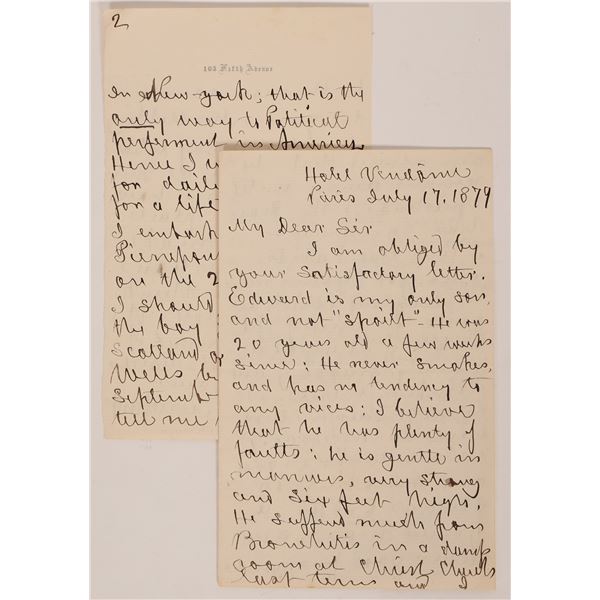 2
103 Fifth Avenue
In New-york; that is the
only way to Political
perferment in America
Hence I
for dail
for a life
I embark
Pierrepon
on the 2
I should
the boy
Scotland
Wells b
September
tell me
Hotel Vendôme
Paris July 17. 1879
My Dear Sir
I am obliged by
your Satisfactory letter.
Edward is my only son,
and not "spoilt" - He was
20 years old a few weeks
since: He never smokes,
and has no tendency to
any vices: I believe
that he has plenty of
faults: he is gentle in
manners, very strong
and Six feet high,
He suffered much from
Bronchitis in a damp
room at Christ Church
last term and I